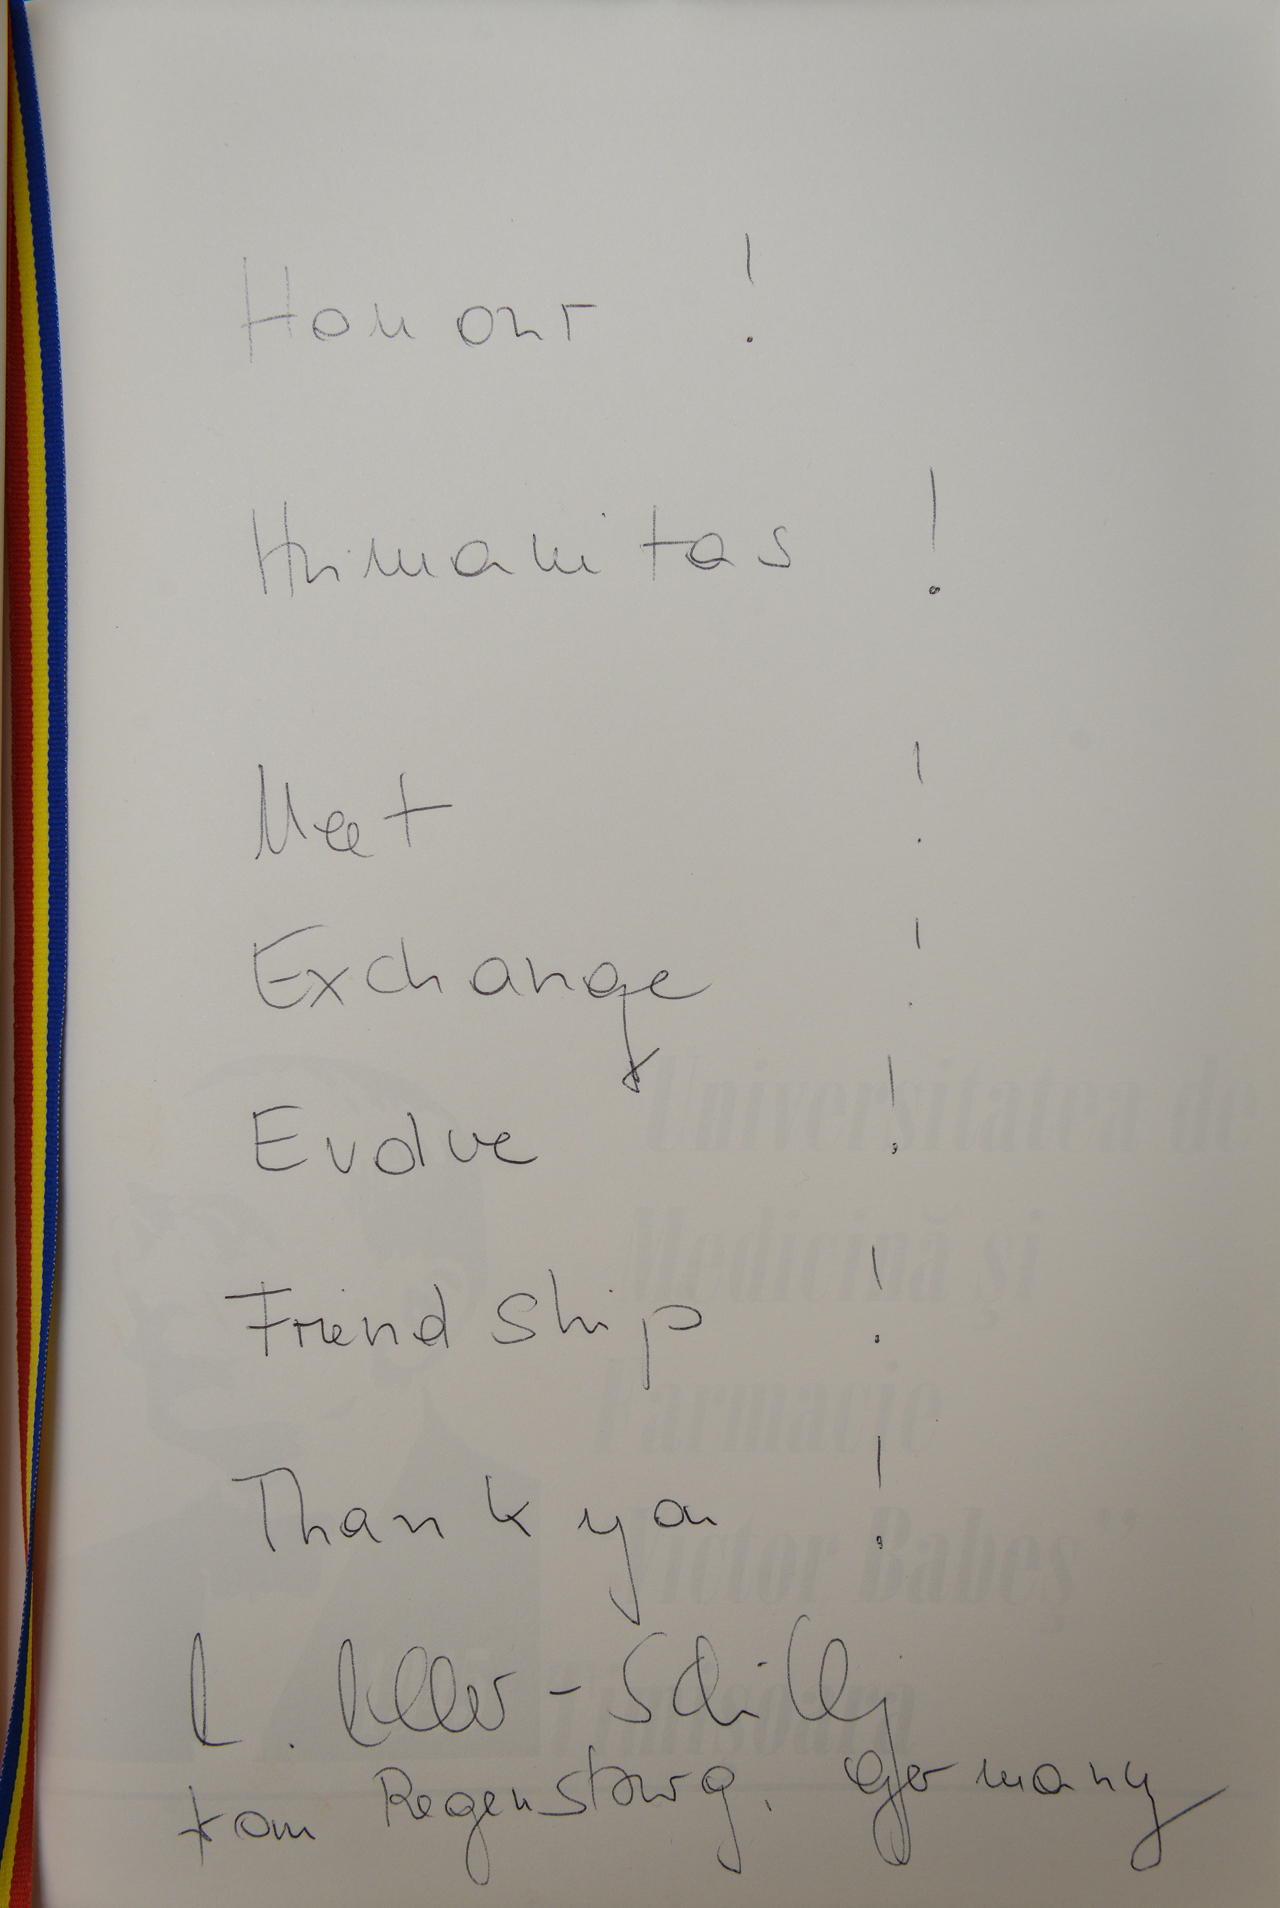 Honour !
Humanitas !
Meet !
Exchange !
Evolve !
Friendship !
Thank you !
- Schilly
from Regensburg, Germany
Universitatea de
Medicină şi
Farmacie
Victor Babeş"
Timişoara